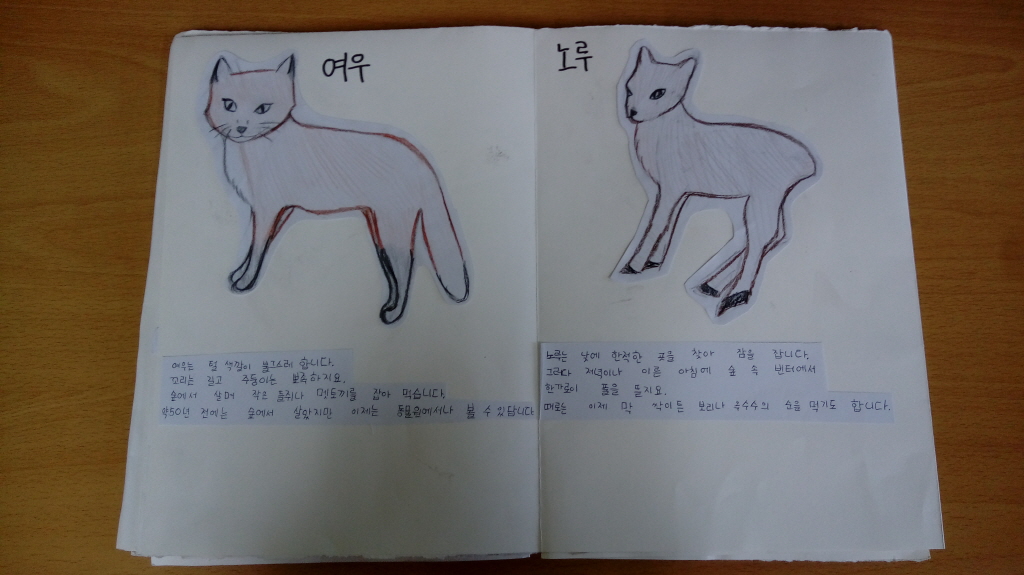 여우
여우는 털 색깔이 불그스레 합니다.
꼬리는 길고 주둥이는 뾰족하지요.
숲에서 살며 작은 들쥐나 멧토끼를 잡아 먹습니다.
약50년 전에는 숲에서 살았지만 이제는 동물원에서나 볼 수 있답니다
노루
노루는 낮에 한적한 곳을 찾아 잠을 잡니다.
그러다 저녁이나 이른 아침에 숲 속 빈터에서
한가로이 풀을 뜯지요.
때로는 이제 막 싹이튼 보리나 옥수수의 순을 먹기도 합니다.